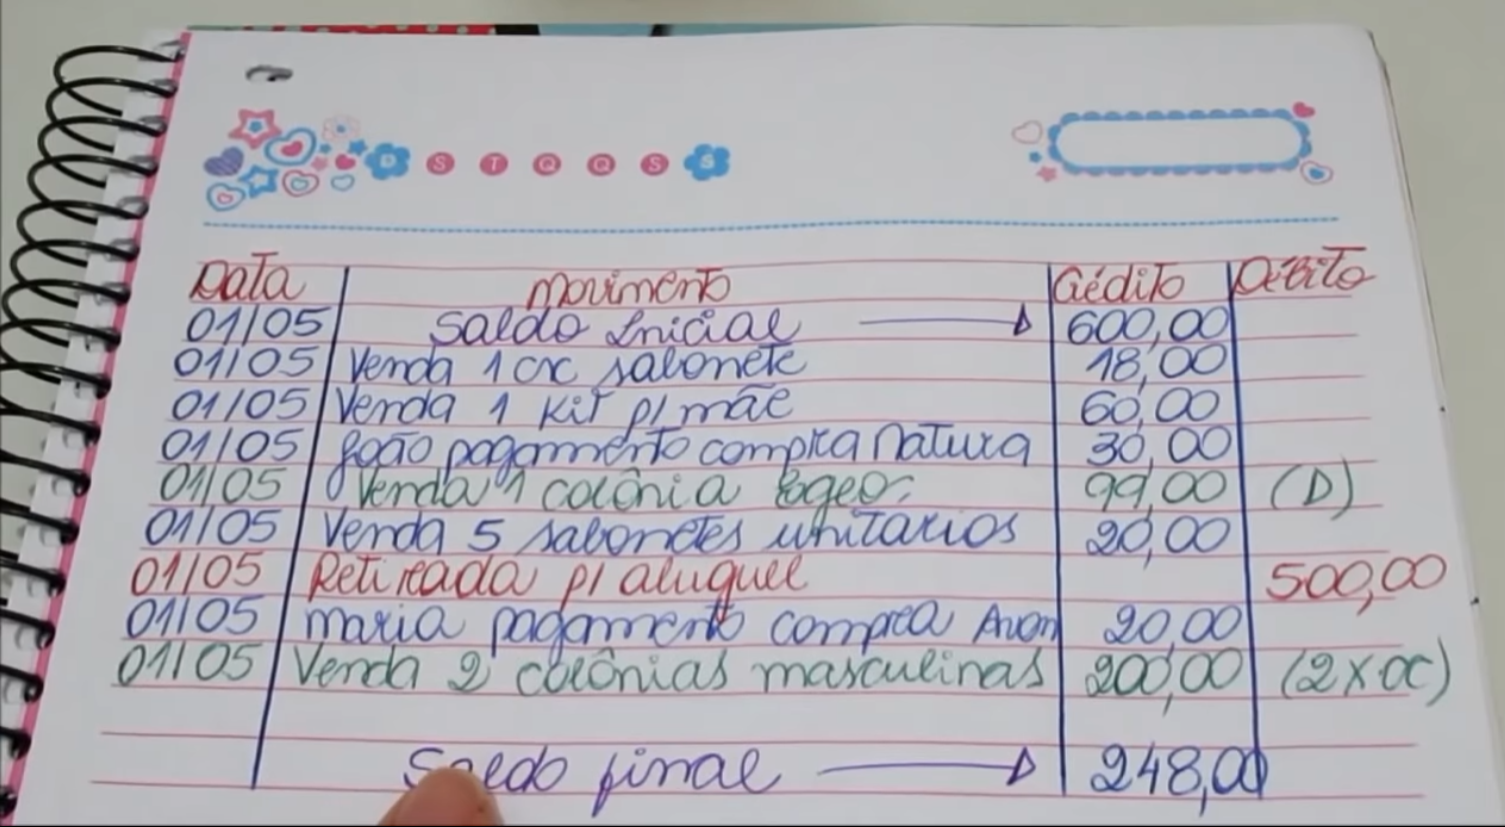 D S T Q Q S S
Data Movimento Crédito Débito
01/05 Saldo Inicial 600,00
01/05 Venda 1 cx sabonete 18,00
01/05 Venda 1 Kit p/ mãe 60,00
01/05 João pagamento compra Natura 30,00
01/05 Venda 1 colônia 99,00 (D)
01/05 Venda 5 sabonetes unitarios 20,00
01/05 Retirada p/ aluguel 500,00
01/05 Maria pagamento compra Avon 20,00
01/05 Venda 2 colônias masculinas 200,00 (2x cc)
Saldo final 248,00